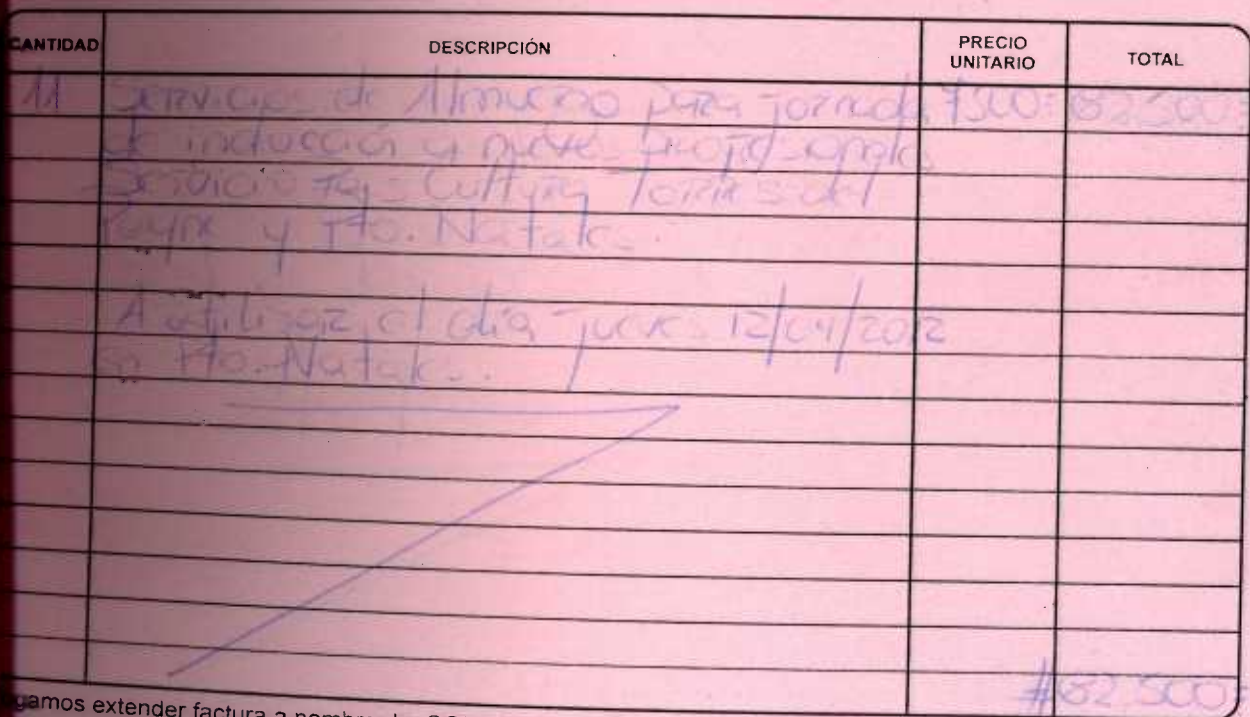 CANTIDAD DESCRIPCIÓN PRECIO UNITARIO TOTAL
11 Servicios de Almuerzo para jornada 7500= 82.500=
de inducción a nueve
Servicio Cultura Torres del
Payne y Pto. Natales.
A utilizar el día jueves 12/04/2012
en Pto. Natales.
#82.500=
gamos extender factura a nombre de